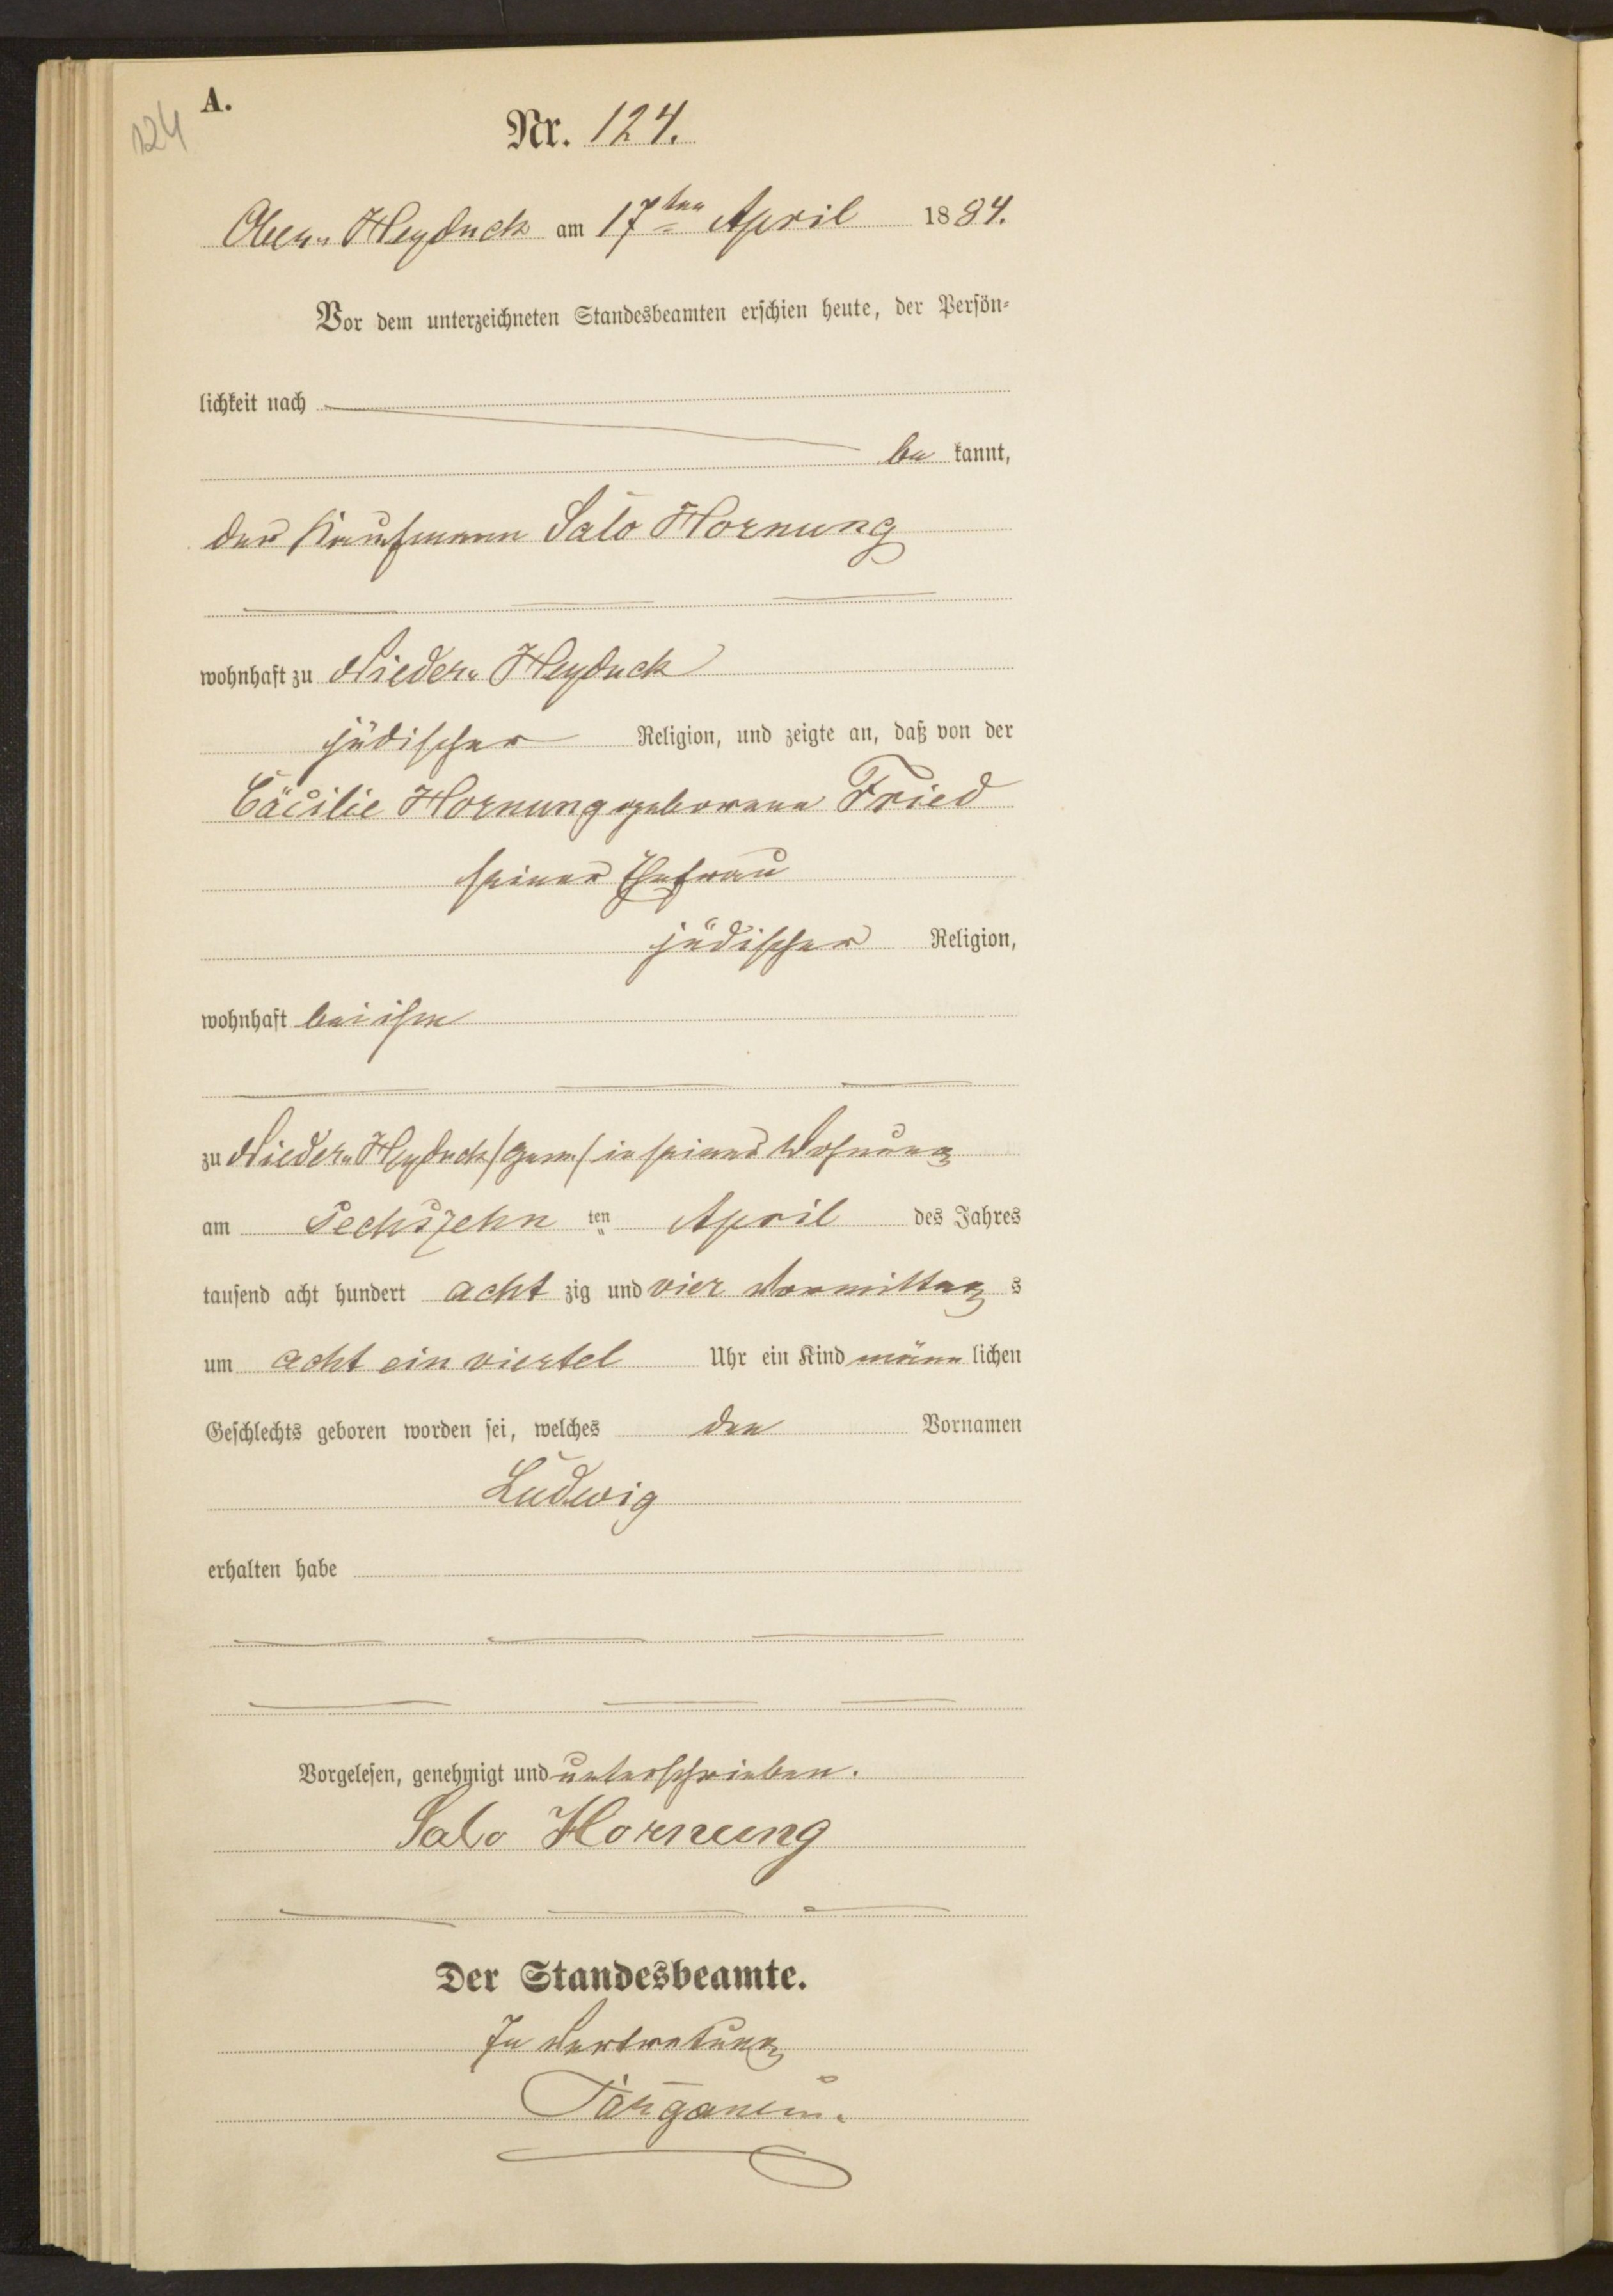 A.
124
Nr. 124.
Ober Heyduck am 17ten April 1884.
Vor dem unterzeichneten Standesbeamten erschien heute, der Persön-
lichkeit nach
be kannt,
der Kaufmann Salo Hornung
wohnhaft zu Nieder Heyduck
jüdischer Religion, und zeigte an, daß von der
Cäcilie Hornung geborenen Fried
seiner Ehefrau
jüdischer Religion,
wohnhaft bei ihm
zu Nieder Heyduck in seiner Wohnung
am Sechszehn ten April des Jahres
tausend acht hundert acht zig und vier Vormittag s
um acht ein viertel Uhr ein Kind männ lichen
Geschlechts geboren worden sei, welches den Vornamen
Ludwig
erhalten habe
Vorgelesen, genehmigt und unterschrieben.
Salo Hornung
Der Standesbeamte.
In Vertretung